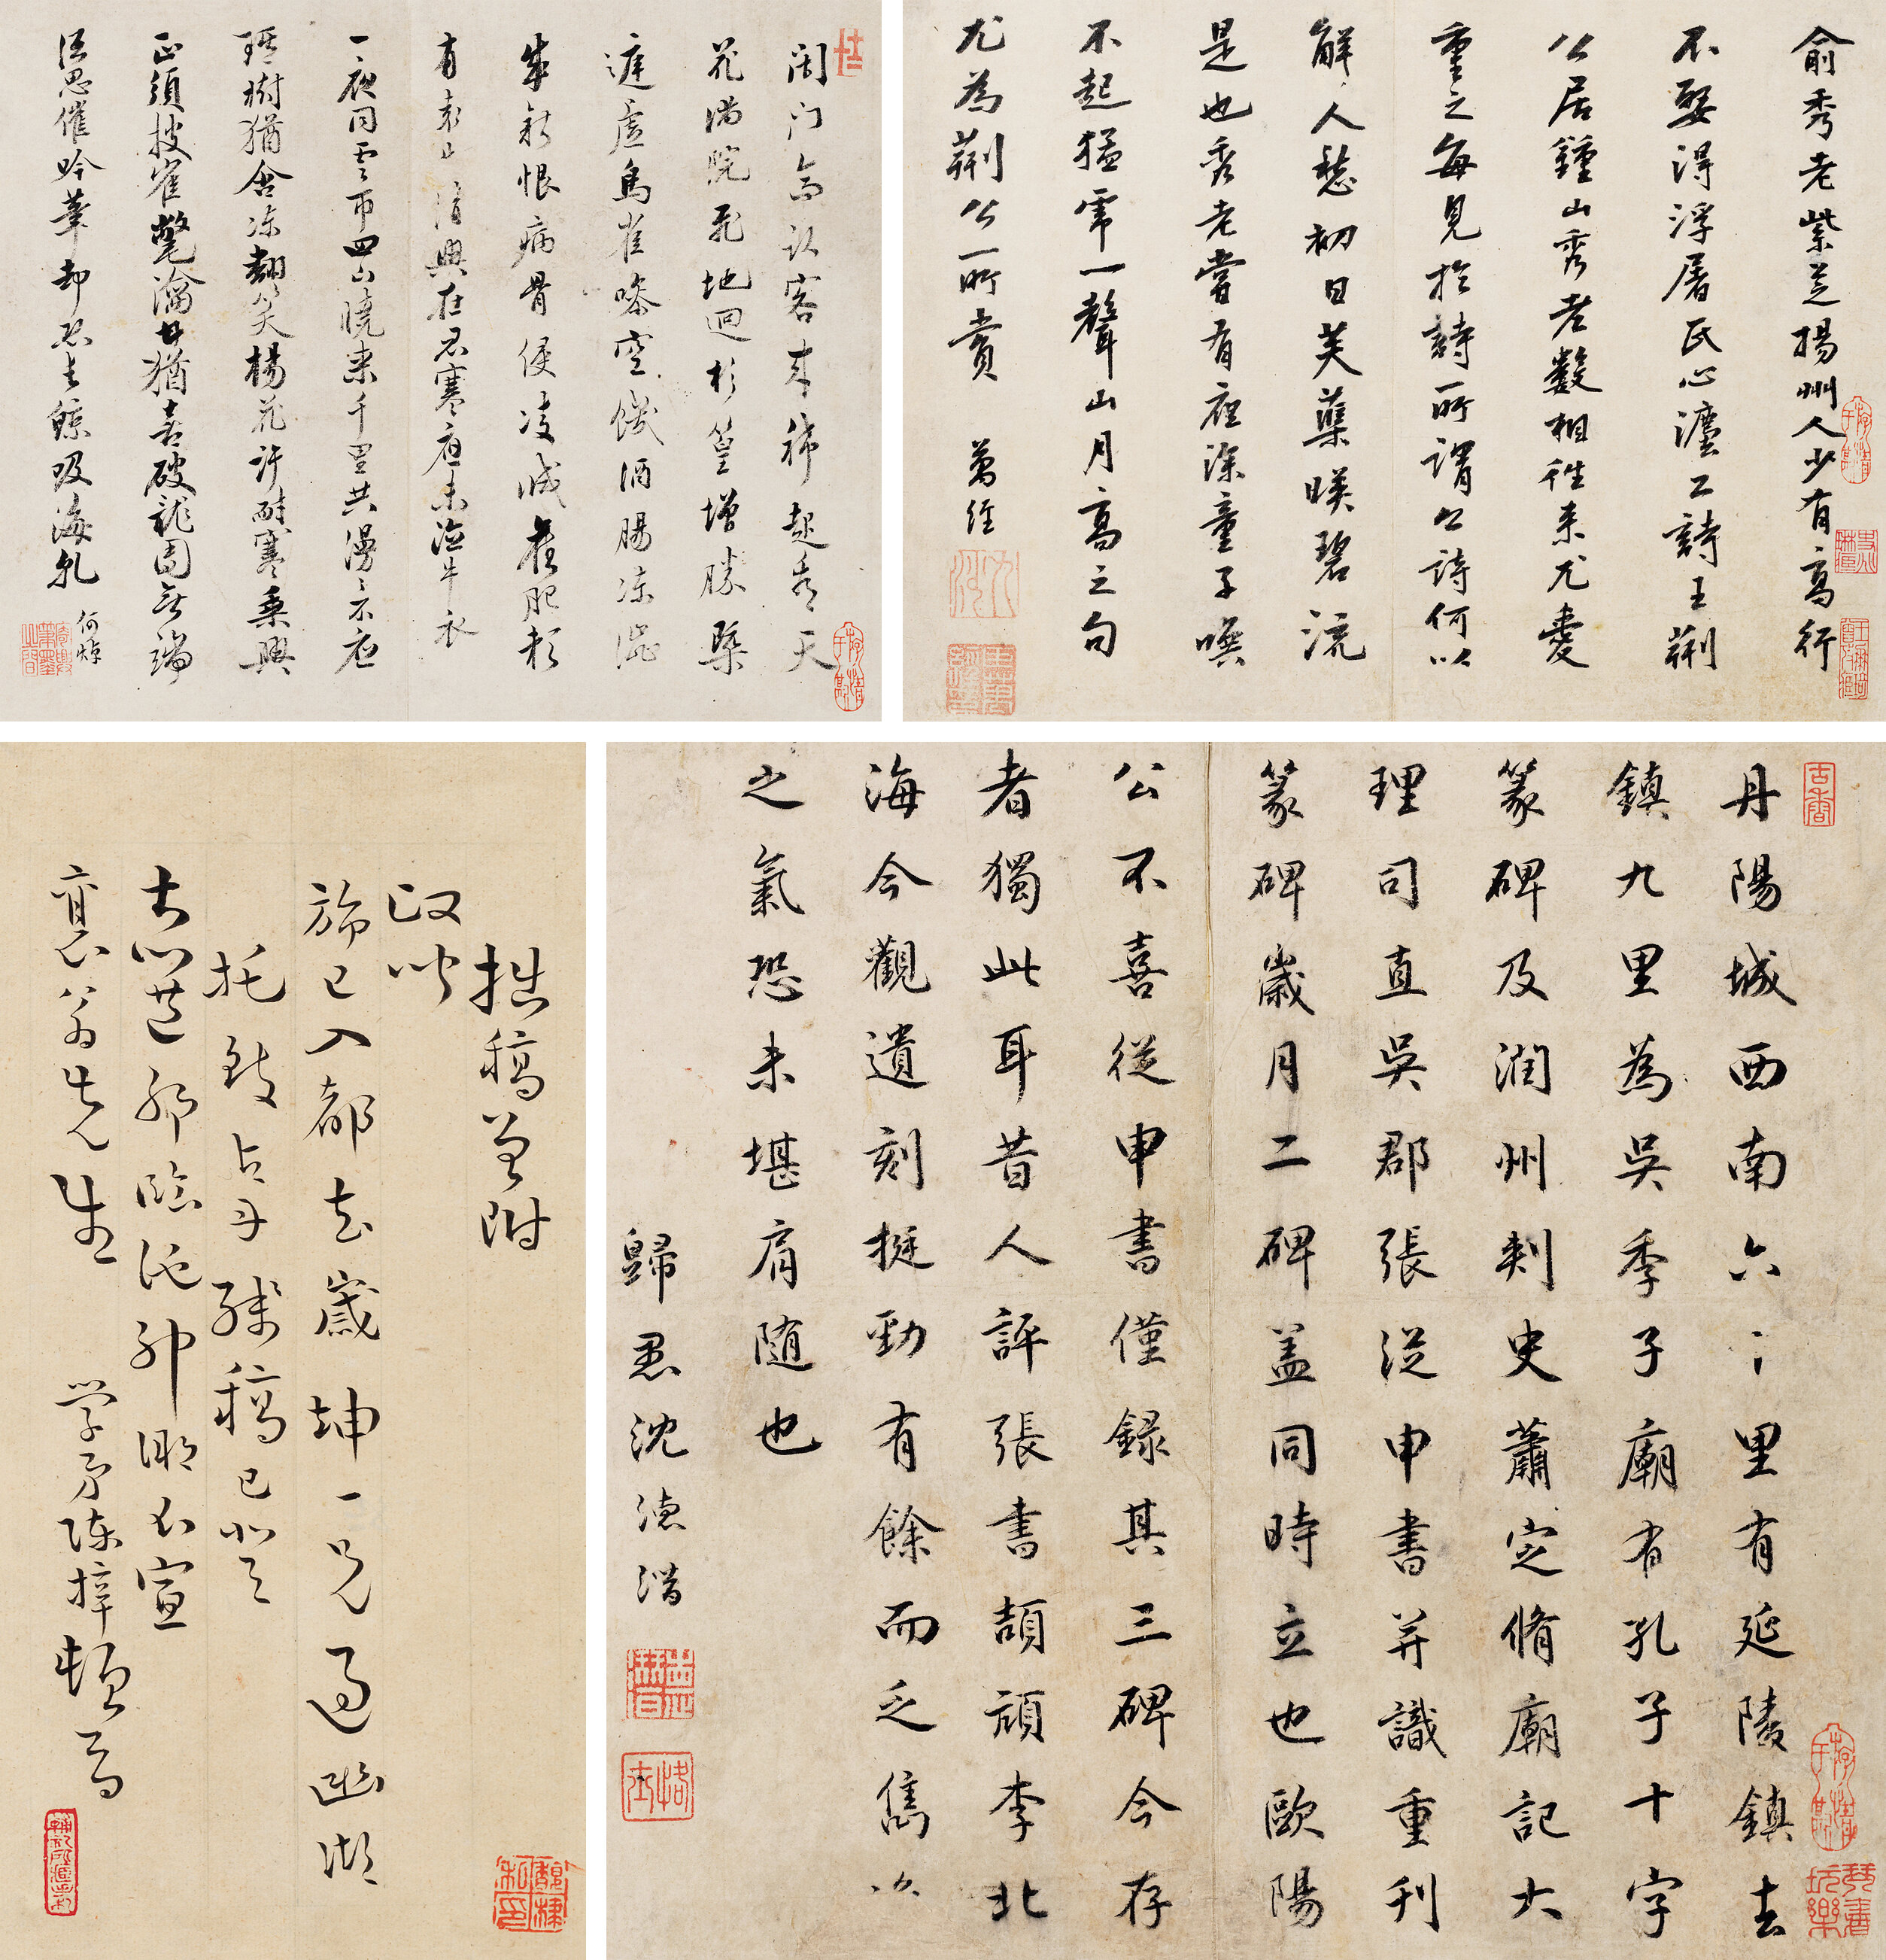 俞秀老紫芝揚州人少有高行
不娶得浮屠氏心灋工詩王荆
公居鍾山秀老數相往來尤愛
重之每見於詩所謂公詩何以
解人愁初日芙蕖暎碧流
是也秀老嘗有夜深童子喚
不起猛虎一聲山月高之句
尤為荆公所賞 萬經
閉门高臥客來稀起看天
花滿院飛地迥杉篁增勝槩
庭虛鳥雀噪空饑酒腸凍澀
成新恨病骨侵凌減舊肥頼
有袁山清興在忍寒應未泣牛衣
一夜同雲帀四山曉来千里共漫漫不応
琪樹猶含凍翻笑楊花許耐寒乗興
正須披雀氅瀹甘猶喜破龍團無端
酒思催吟筆却恐長鯨吸海乹 何焯
丹陽城西南六十里有延陵鎮去
鎮九里為吳季子廟有孔子十字
篆碑及潤州刺史蕭定脩廟記大
理司直吳郡張從申書并識重刊
篆碑歲月二碑盖同時立也歐陽
公不喜從申書僅録其三碑今存
者獨此耳昔人評張書頡頏李北
海今觀遺刻挺勁有餘而乏儁爽
之氣恐未堪肩随也
歸愚沈德潛
拙稿曾附
政公
旆已入都去歲坤一兄過幽湖
托致占母殘稿已登
臨池神溯不宣
寒翁先生 学弟陈梓頓首